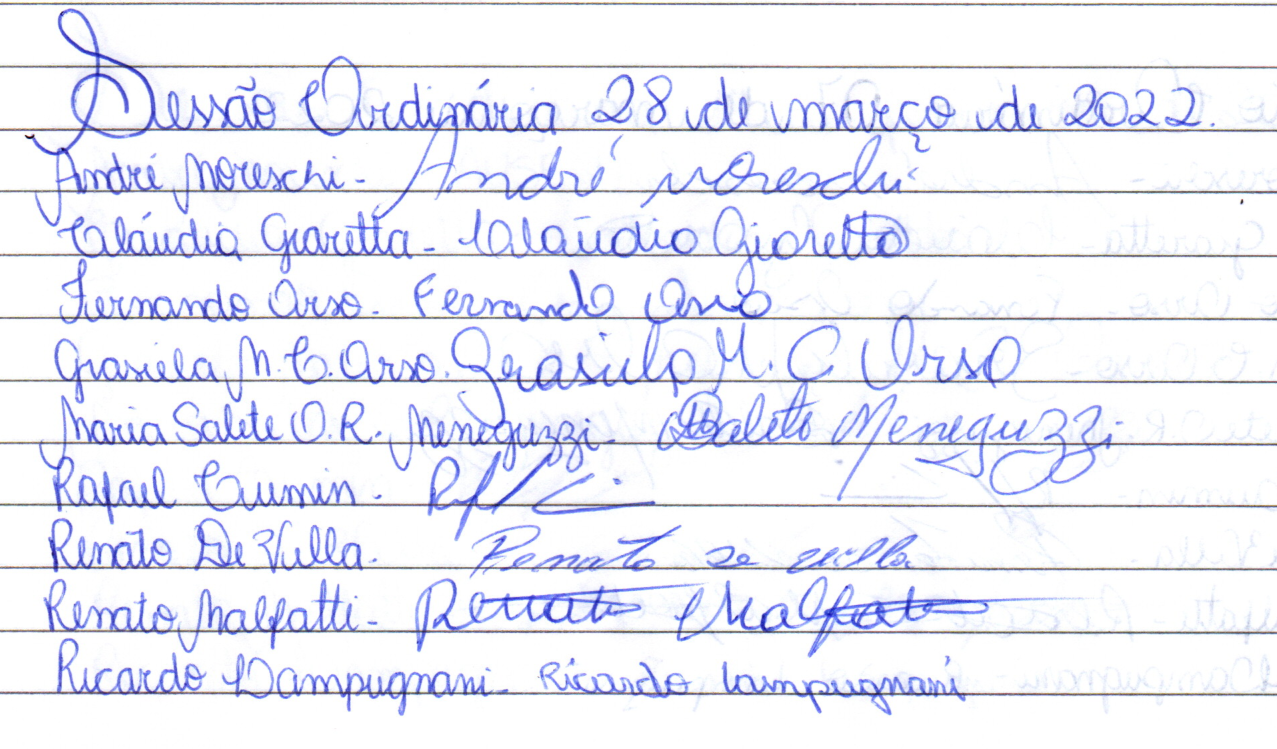 Sessão Ordinária 28 de março de 2022.
André Moreschi - André Moreschi
Claúdia Giaretta - Claúdio Gioretto
Fernando Orso - Fernando Orso
Grasiela M. C. Orso. Grasiela M. C. Orso
Maria Salete O. R. Meneguzzi - Salete Meneguzzi
Rafael Cumin -
Renato De Villa. Renato de villa
Renato Malfatti - Renato Malfatti
Ricardo Lampugnani - Ricardo Lampugnani